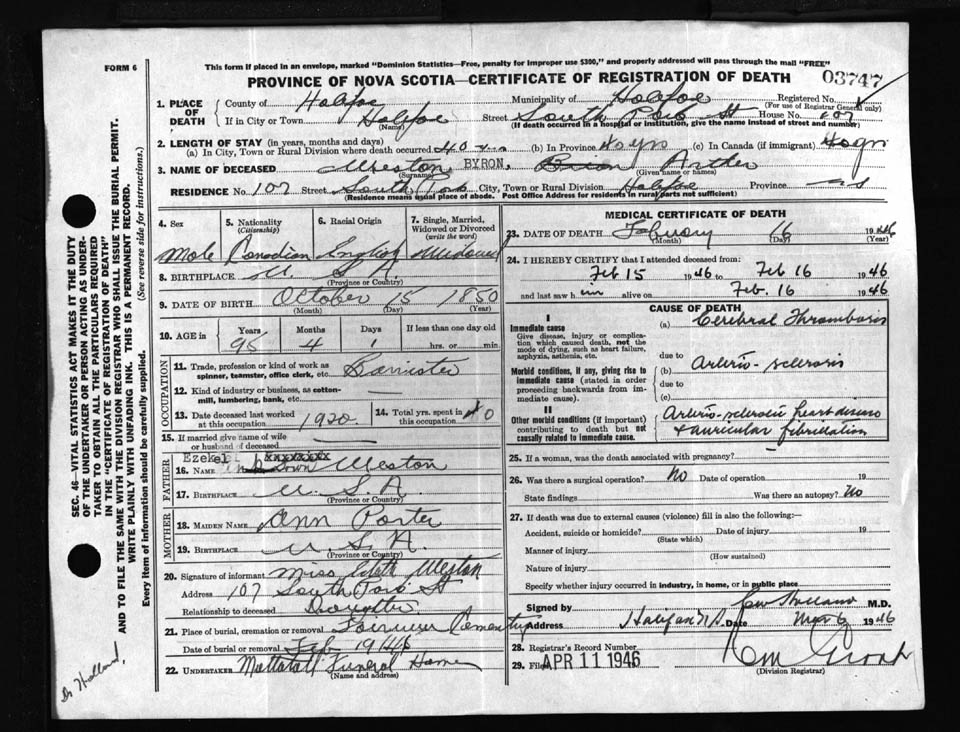 FORM 6
This form if placed in an envelope, marked "Dominion Statistics—Free, penalty for improper use $300," and properly addressed will pass through the mail "FREE"
PROVINCE OF NOVA SCOTIA—CERTIFICATE OF REGISTRATION OF DEATH
03747
1. PLACE OF DEATH County of Halifax Municipality of Halifax Registered No. (For use of Registrar General only)
If in City or Town Halifax (Name) Street South Park St House No. 107
(If death occurred in a hospital or institution, give the name instead of street and number)
2. LENGTH OF STAY (in years, months and days)
(a) In City, Town or Rural Division where death occurred 40 yrs (b) In Province 40 yrs (c) In Canada (if immigrant) 40 yrs
3. NAME OF DECEASED Weston (Surname) BYRON. Brian Arthur (Given name or names)
RESIDENCE No. 107 Street South Park City, Town or Rural Division Halifax Province NS
(Residence means usual place of abode. Post Office Address for residents in rural parts not sufficient)
4. Sex Male
5. Nationality (Citizenship) Canadian
6. Racial Origin English
7. Single, Married, Widowed or Divorced (write the word) Widowed
8. BIRTHPLACE U.S.A. (Province or Country)
9. DATE OF BIRTH October (Month) 15 (Day) 1850 (Year)
10. AGE in Years 95 Months 4 Days 1 If less than one day old hrs. or min.
OCCUPATION
11. Trade, profession or kind of work as spinner, teamster, office clerk, etc. Barrister
12. Kind of industry or business, as cotton-mill, lumbering, bank, etc.
13. Date deceased last worked at this occupation 1920
14. Total yrs. spent in this occupation 40
15. If married give name of wife or husband of deceased
FATHER
Ezekel xxxxxxxx
16. NAME unknown Weston
17. BIRTHPLACE U.S.A. (Province or Country)
MOTHER
18. MAIDEN NAME Ann Porter
19. BIRTHPLACE U S A. (Province or Country)
20. Signature of informant Miss Edith Weston
Address 107 South Park St
Relationship to deceased Daughter
21. Place of burial, cremation or removal Fairview Cemetery
Date of burial or removal Feb 1946
22. UNDERTAKER Mattatall Funeral Home (Name and address)
MEDICAL CERTIFICATE OF DEATH
23. DATE OF DEATH February (Month) 16 (Day) 1946 (Year)
24. I HEREBY CERTIFY that I attended deceased from:
Feb 15 1946 to Feb 16 1946
and last saw h im alive on Feb. 16 1946
CAUSE OF DEATH
I
Immediate cause
Give disease, injury or complication which caused death, not the mode of dying, such as heart failure, asphyxia, asthenia, etc.
(a) Cerebral Thrombosis
due to
Morbid conditions, if any, giving rise to immediate cause (stated in order proceeding backwards from immediate cause).
(b) Arterio-sclerosis
due to
(c)
II
Other morbid conditions (if important) contributing to death but not causally related to immediate cause.
Arterio-sclerotic heart disease
& auricular fibrillation
25. If a woman, was the death associated with pregnancy?
26. Was there a surgical operation? No Date of operation 19
State findings Was there an autopsy? No
27. If death was due to external causes (violence) fill in also the following:—
Accident, suicide or homicide? (State which) Date of injury 19
Manner of injury (How sustained)
Nature of injury
Specify whether injury occurred in industry, in home, or in public place
Signed by M.D.
Address Halifax N.S. Date Mar 6 1946
28. Registrar's Record Number
29. Filed APR 11 1946
(Division Registrar)
SEC. 46—VITAL STATISTICS ACT MAKES IT THE DUTY OF THE UNDERTAKER OR PERSON ACTING AS UNDERTAKER TO OBTAIN ALL THE PARTICULARS REQUIRED IN THE "CERTIFICATE OF REGISTRATION OF DEATH" AND TO FILE THE SAME WITH THE DIVISION REGISTRAR WHO SHALL ISSUE THE BURIAL PERMIT.
WRITE PLAINLY WITH UNFADING INK. THIS IS A PERMANENT RECORD.
Every item of information should be carefully supplied. (See reverse side for instructions.)
Dr Holland,